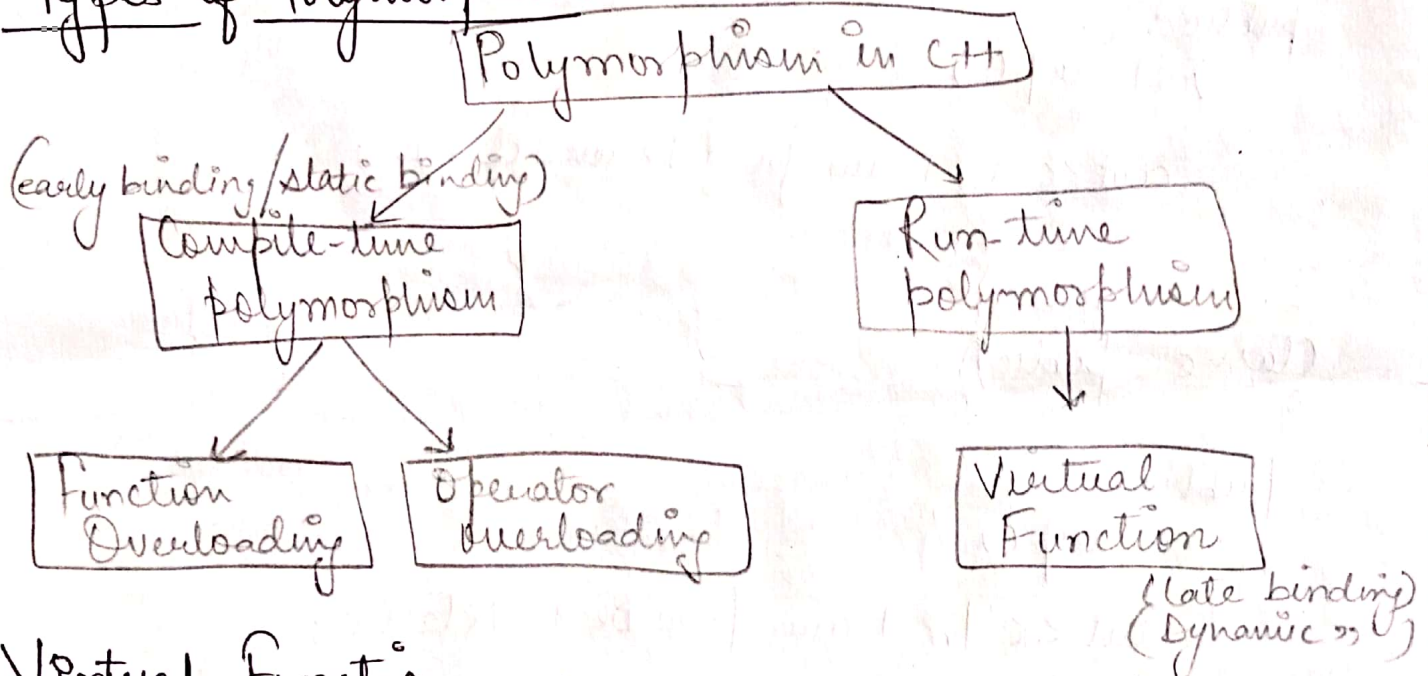 Types of
Polymorphism in C++
(early binding/static binding)
Compile-time
polymorphism
Run-time
polymorphism
Function
Overloading
Operator
overloading
Virtual
Function
(late binding)
(Dynamic ")
Virtual